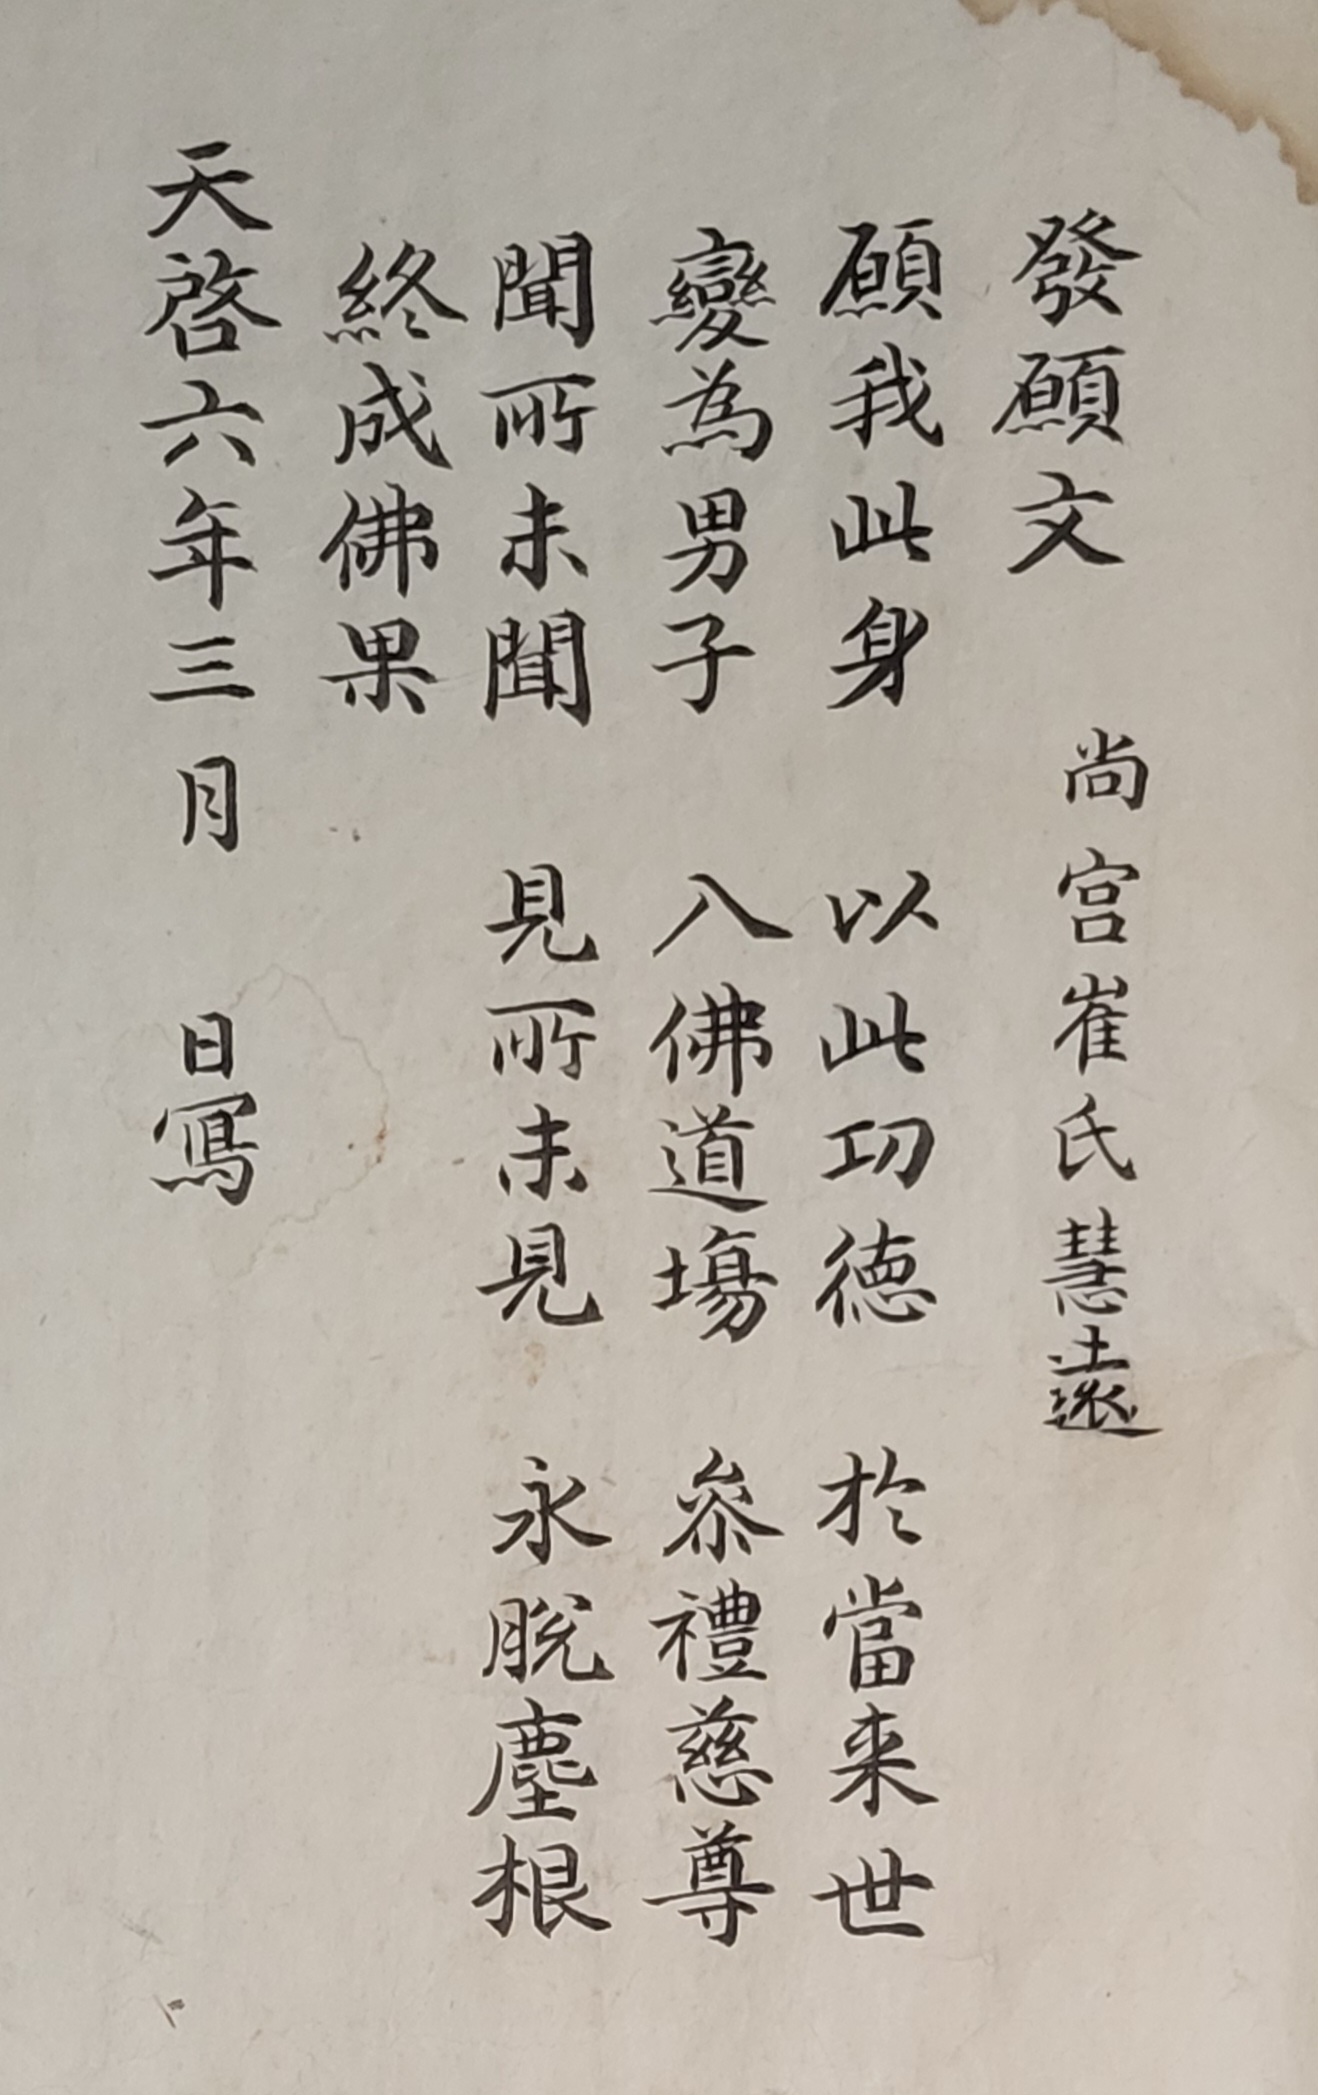 發願文 尚宮崔氏慧遠
願我此身 以此功德 於當来世
變為男子 入佛道場 叅禮慈尊
聞所未聞 見所未見 永脫塵根
終成佛果
天啓六年三月 日寫